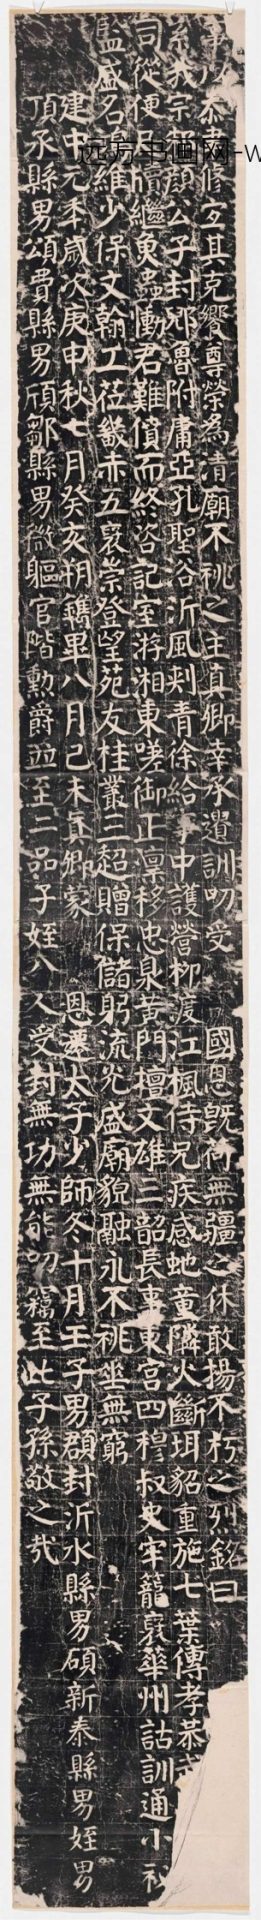 恭惠修宏其克饗尊榮為清廟不祧之主真卿幸承遺訓叨受　國恩既荷無疆之休敢揚不朽之烈銘曰
系我宗邾顏公子封邾魯附庸亞孔聖浴沂風刺青徐給事中護營柳渡江楓侍兄疾感虵童隣火斷珥貂重施七葉傳孝恭
司從便民　繼臾　慟君難僨而終洽記室游湘東嗟御正凜移忠泉黃門壇文雄三詔長事東宮四穆叔史牢籠裒華州詁訓通小秘
監盛名　維少保文翰工莅畿赤五裒崇登望苑友桂叢三超贈保儲躬流光盛廟貌融永不祧垂無窮
建中元年歲次庚申秋七月癸亥朔鐫畢八月己未真卿蒙　恩遷太子少師冬十月壬子男頵封沂水縣男碩新泰縣男姪男
頂承縣男頌費縣男頎鄒縣男　軀官階勳爵並至二品子姪八人受封無功無能叨竊至此子孫敬之哉
远方书画网-w